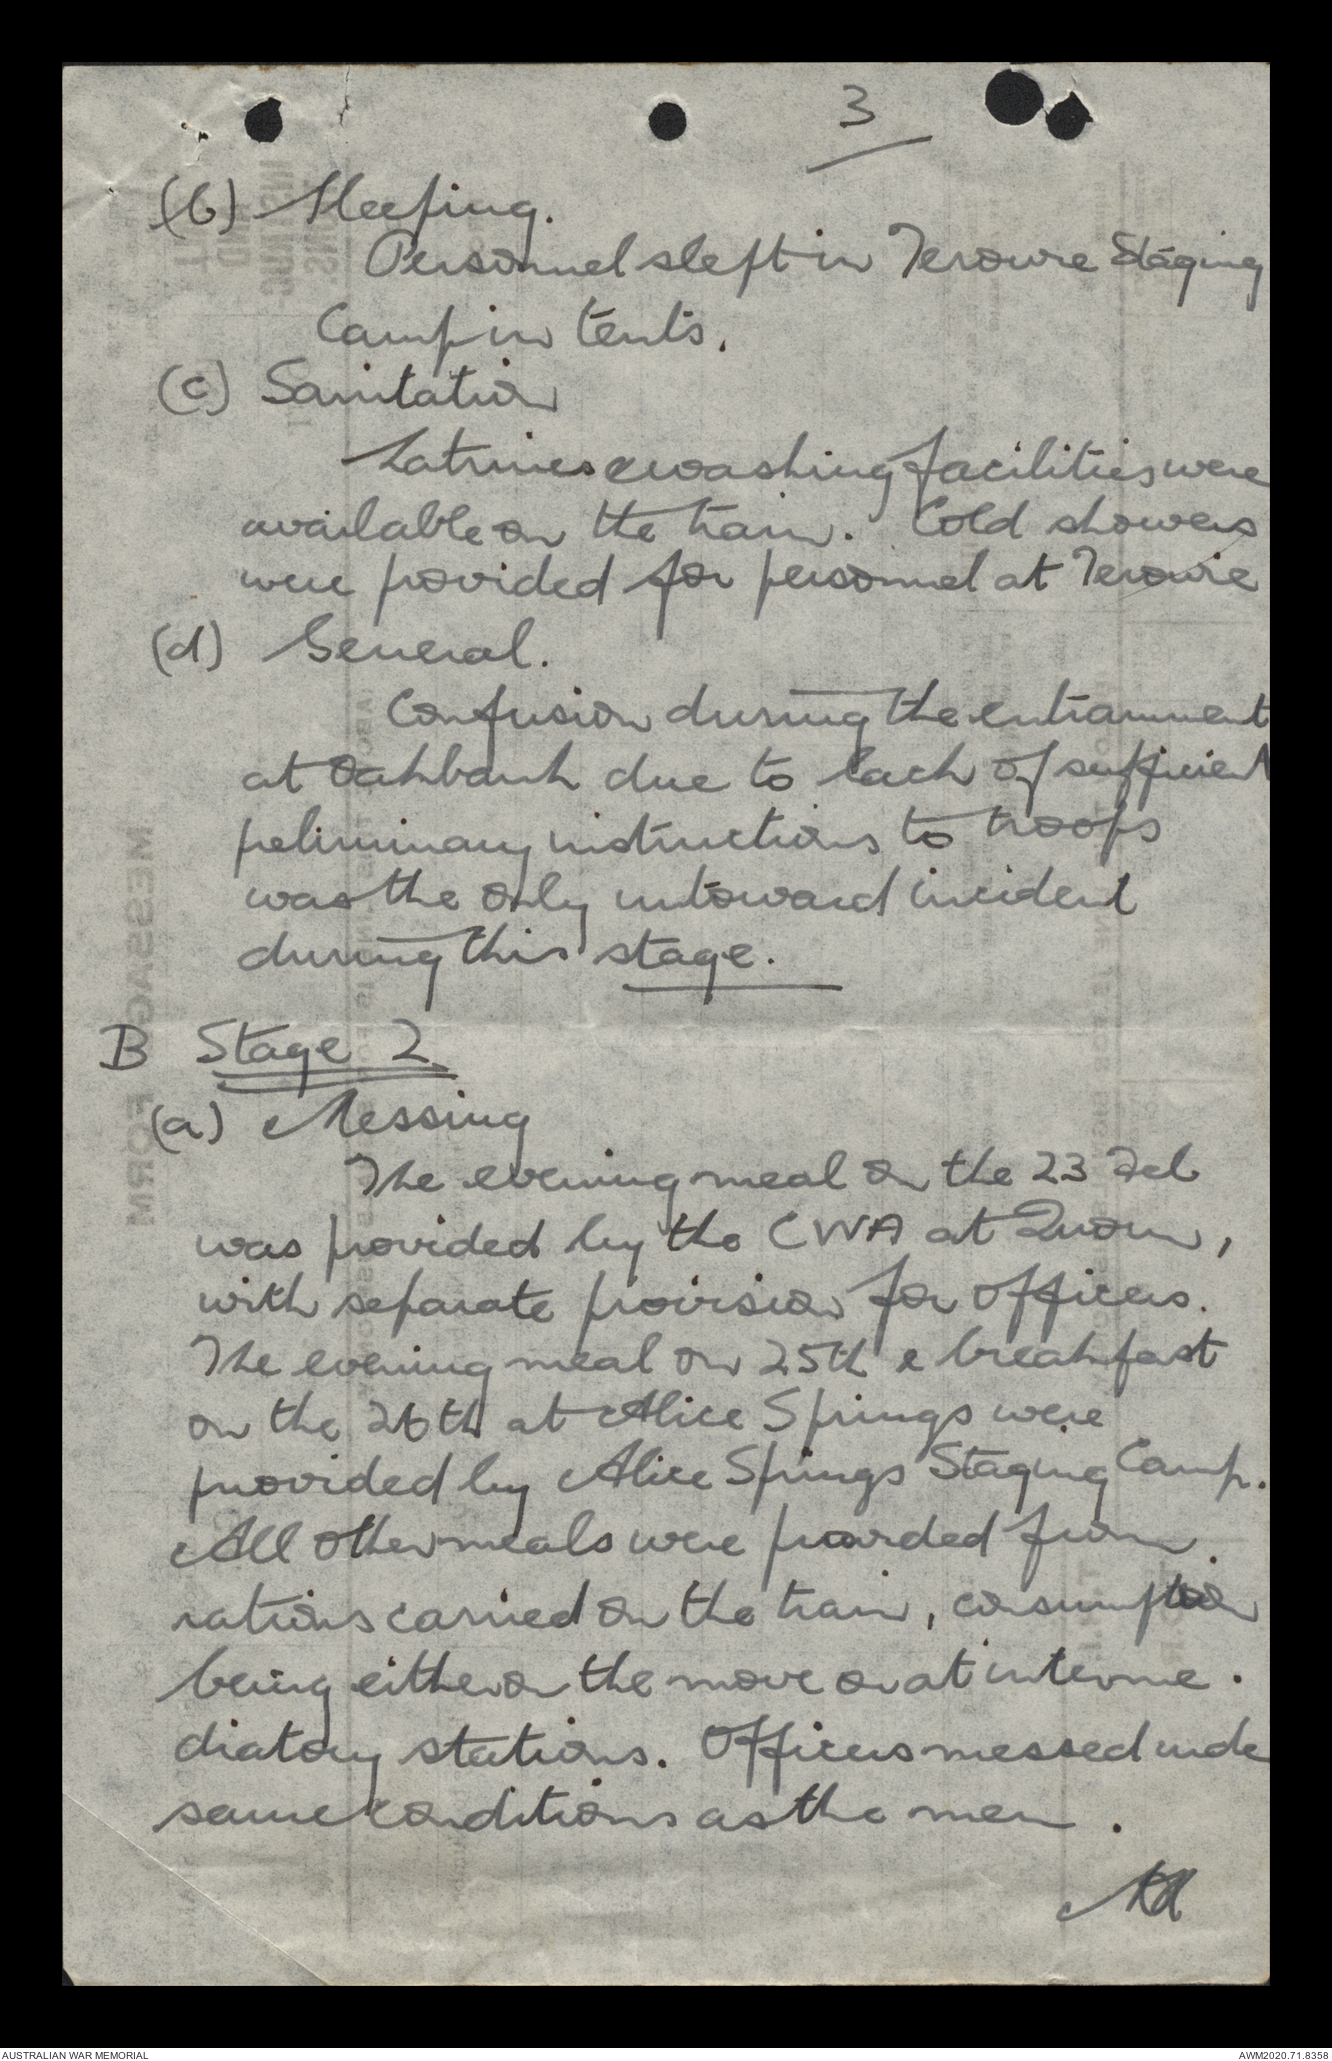 3
(b) Sleeping.
Personnel slept in Terowie Staging
Camp in tents.
(c) Sanitation
Latrines & washing facilities were
available on the train. Cold showers
were provided for personnel at Terowie
(d) General.
Confusion during the entrainment
at Oakbank due to lack of sufficient
preliminary instructions to troops
was the only untoward incident
during this stage.
B Stage 2
(a) Messing
The evening meal on the 23 Feb
was provided by the CWA at Quorn,
with separate provision for officers.
The evening meal on 25th & breakfast
on the 26th at Alice Springs were
provided by Alice Springs Staging Camp.
All other meals were provided from
rations carried on the train, consumption
being either on the move or at interme-
diatory stations. Officers messed unde
same conditions as the men.
AUSTRALIAN WAR MEMORIAL
AWM2020.71.8358